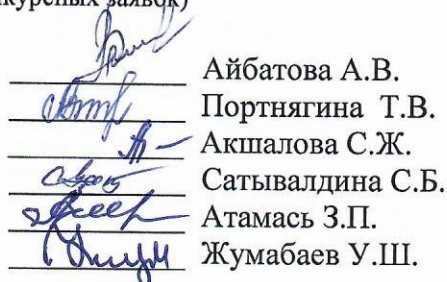 заявок)
Айбатова А.В.
Портнягина Т.В.
Акшалова С.Ж.
Сатывалдина С.Б.
Атамась З.П.
Жумабаев У.Ш.